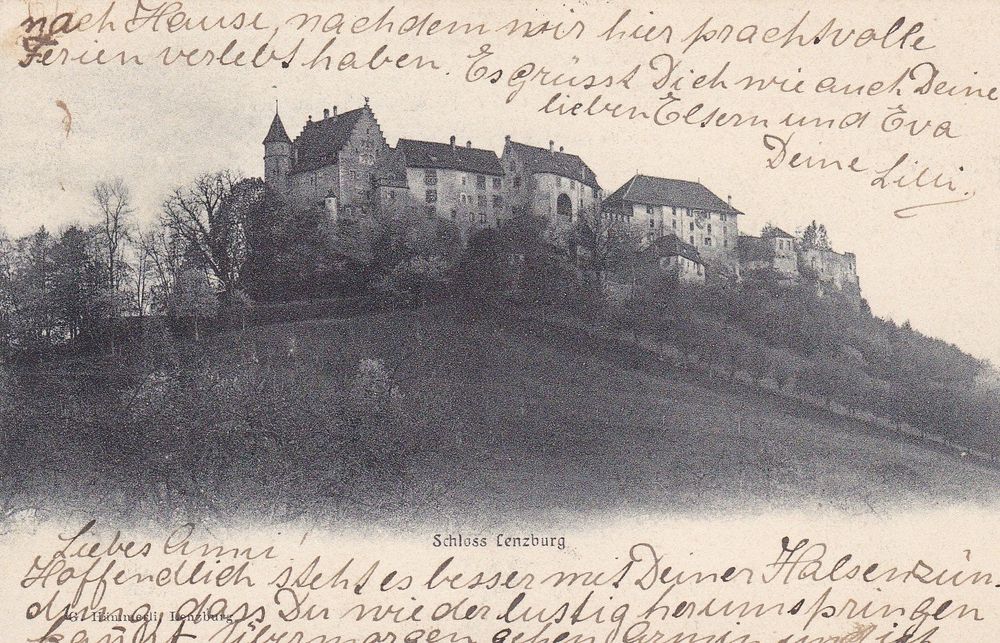 nach Hause, nachdem wir hier prachtvolle
Ferien verlebt haben. Es grüsst Dich wie auch Deine
lieben Eltern und Eva
Deine Lilli.
Schloss Lenzburg
Liebes Anni!
Hoffendlich steht es besser mit Deiner Halsenzün-
dung, dass Du wieder lustig herumspringen
Lenzburg.
kannst. Übermorgen gehen Armin und ich